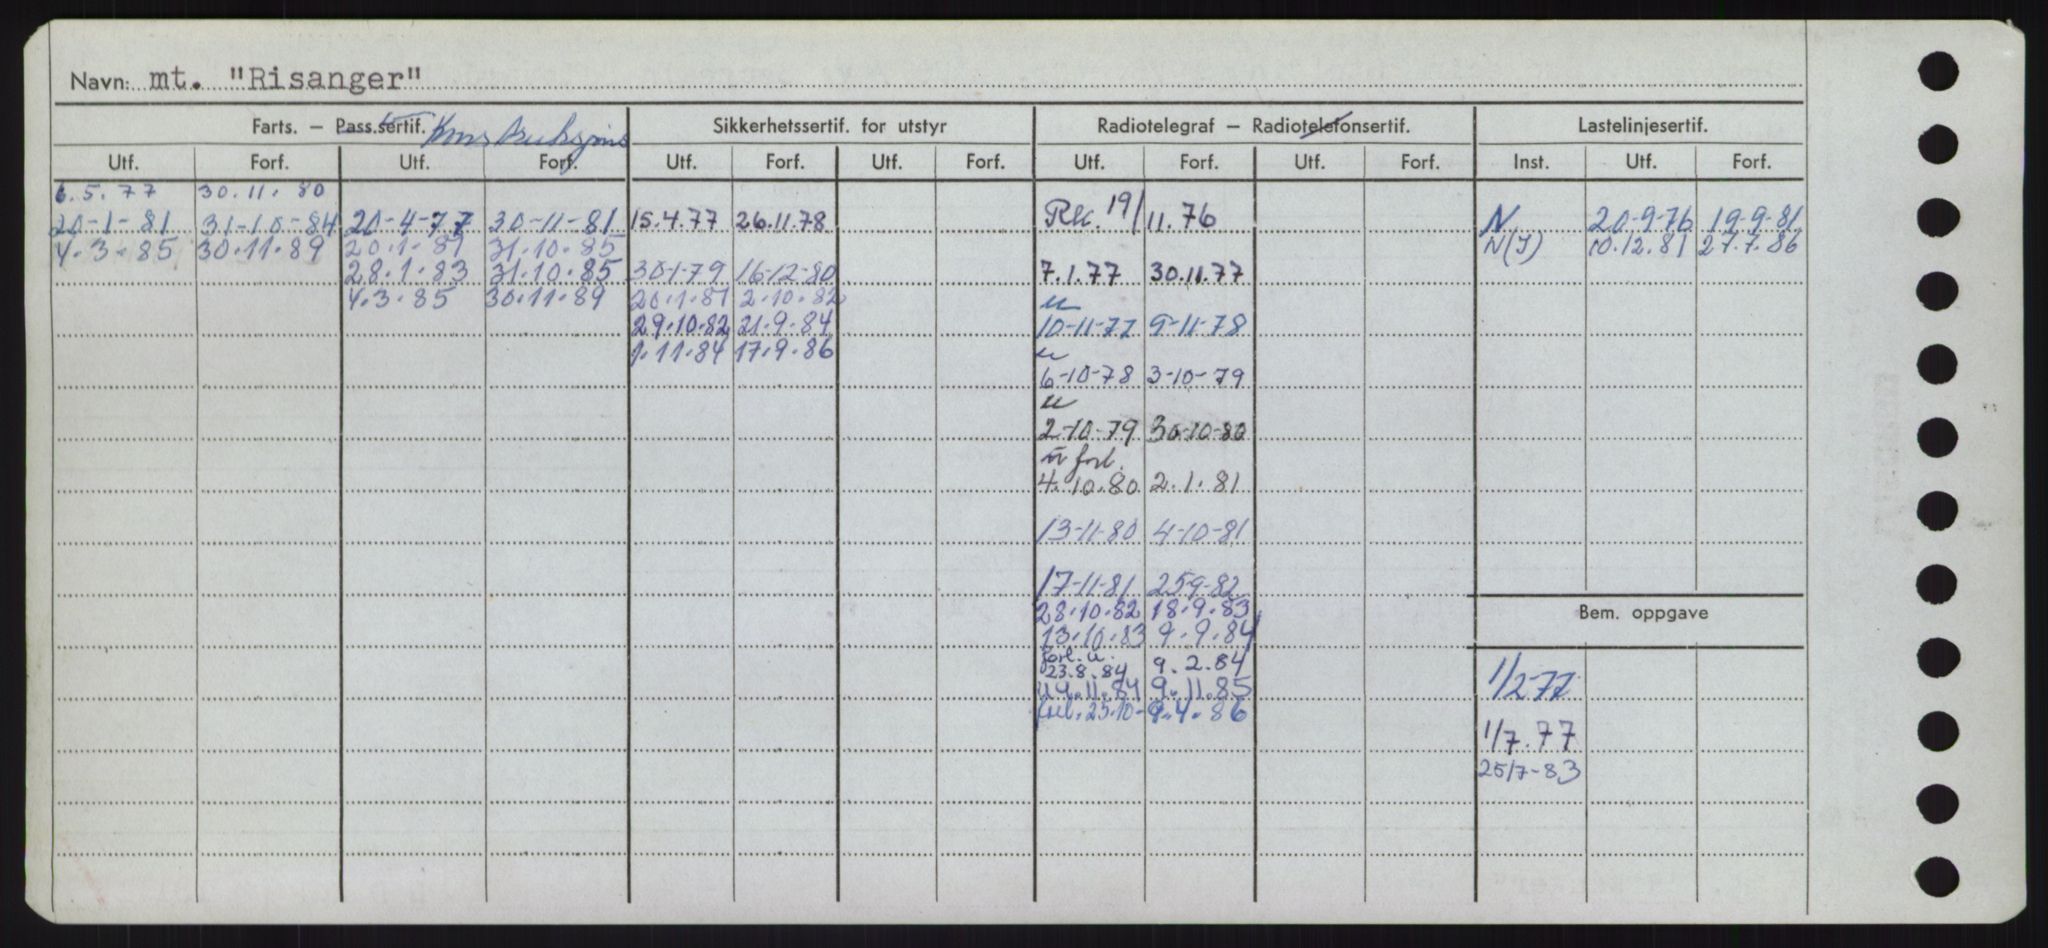 Navn: mt. "Risanger"
Farts. – Pass.sertif. Konstruksjons Sikkerhetssertif. for utstyr Radiotelegraf – Radiotelefonsertif. Lastelinjesertif.
Utf. Forf. Utf. Forf. Utf. Forf. Utf. Forf. Utf. Forf. Utf. Forf. Inst. Utf. Forf.
6.5.77 30.11.80
20-1-81 31-10-84 20-4-77 30-11-81 15.4.77 26.11.78 Rk. 19/11.76 N 20-9-76 19-9-81
4.3.85 30.11.89 20.1.81 31.10.85 N(I) 10.12.81 27.7.86
28.1.83 31.10.85 30-1-79 16-12-80 7.1.77 30.11.77
4.3.85 30.11.89 20.1.81 2.10.82 u
29.10.82 21.9.84 10-11-77 9-11-78
1.11.84 17.9.86 u
6-10-78 3-10-79
u
2-10-79 30-10-80
u forl.
4.10.80 2.1.81
13-11-80 4-10-81
17-11-81 25-9-82
28.10.82 18.9.83 Bem. oppgave
13.10.83 9.9.84
forl. u. 9.2.84
23.8.84
u 9.11.84 9.11.85 1/2-77
25.10- 9.4.86
1/7.77
25/7-83